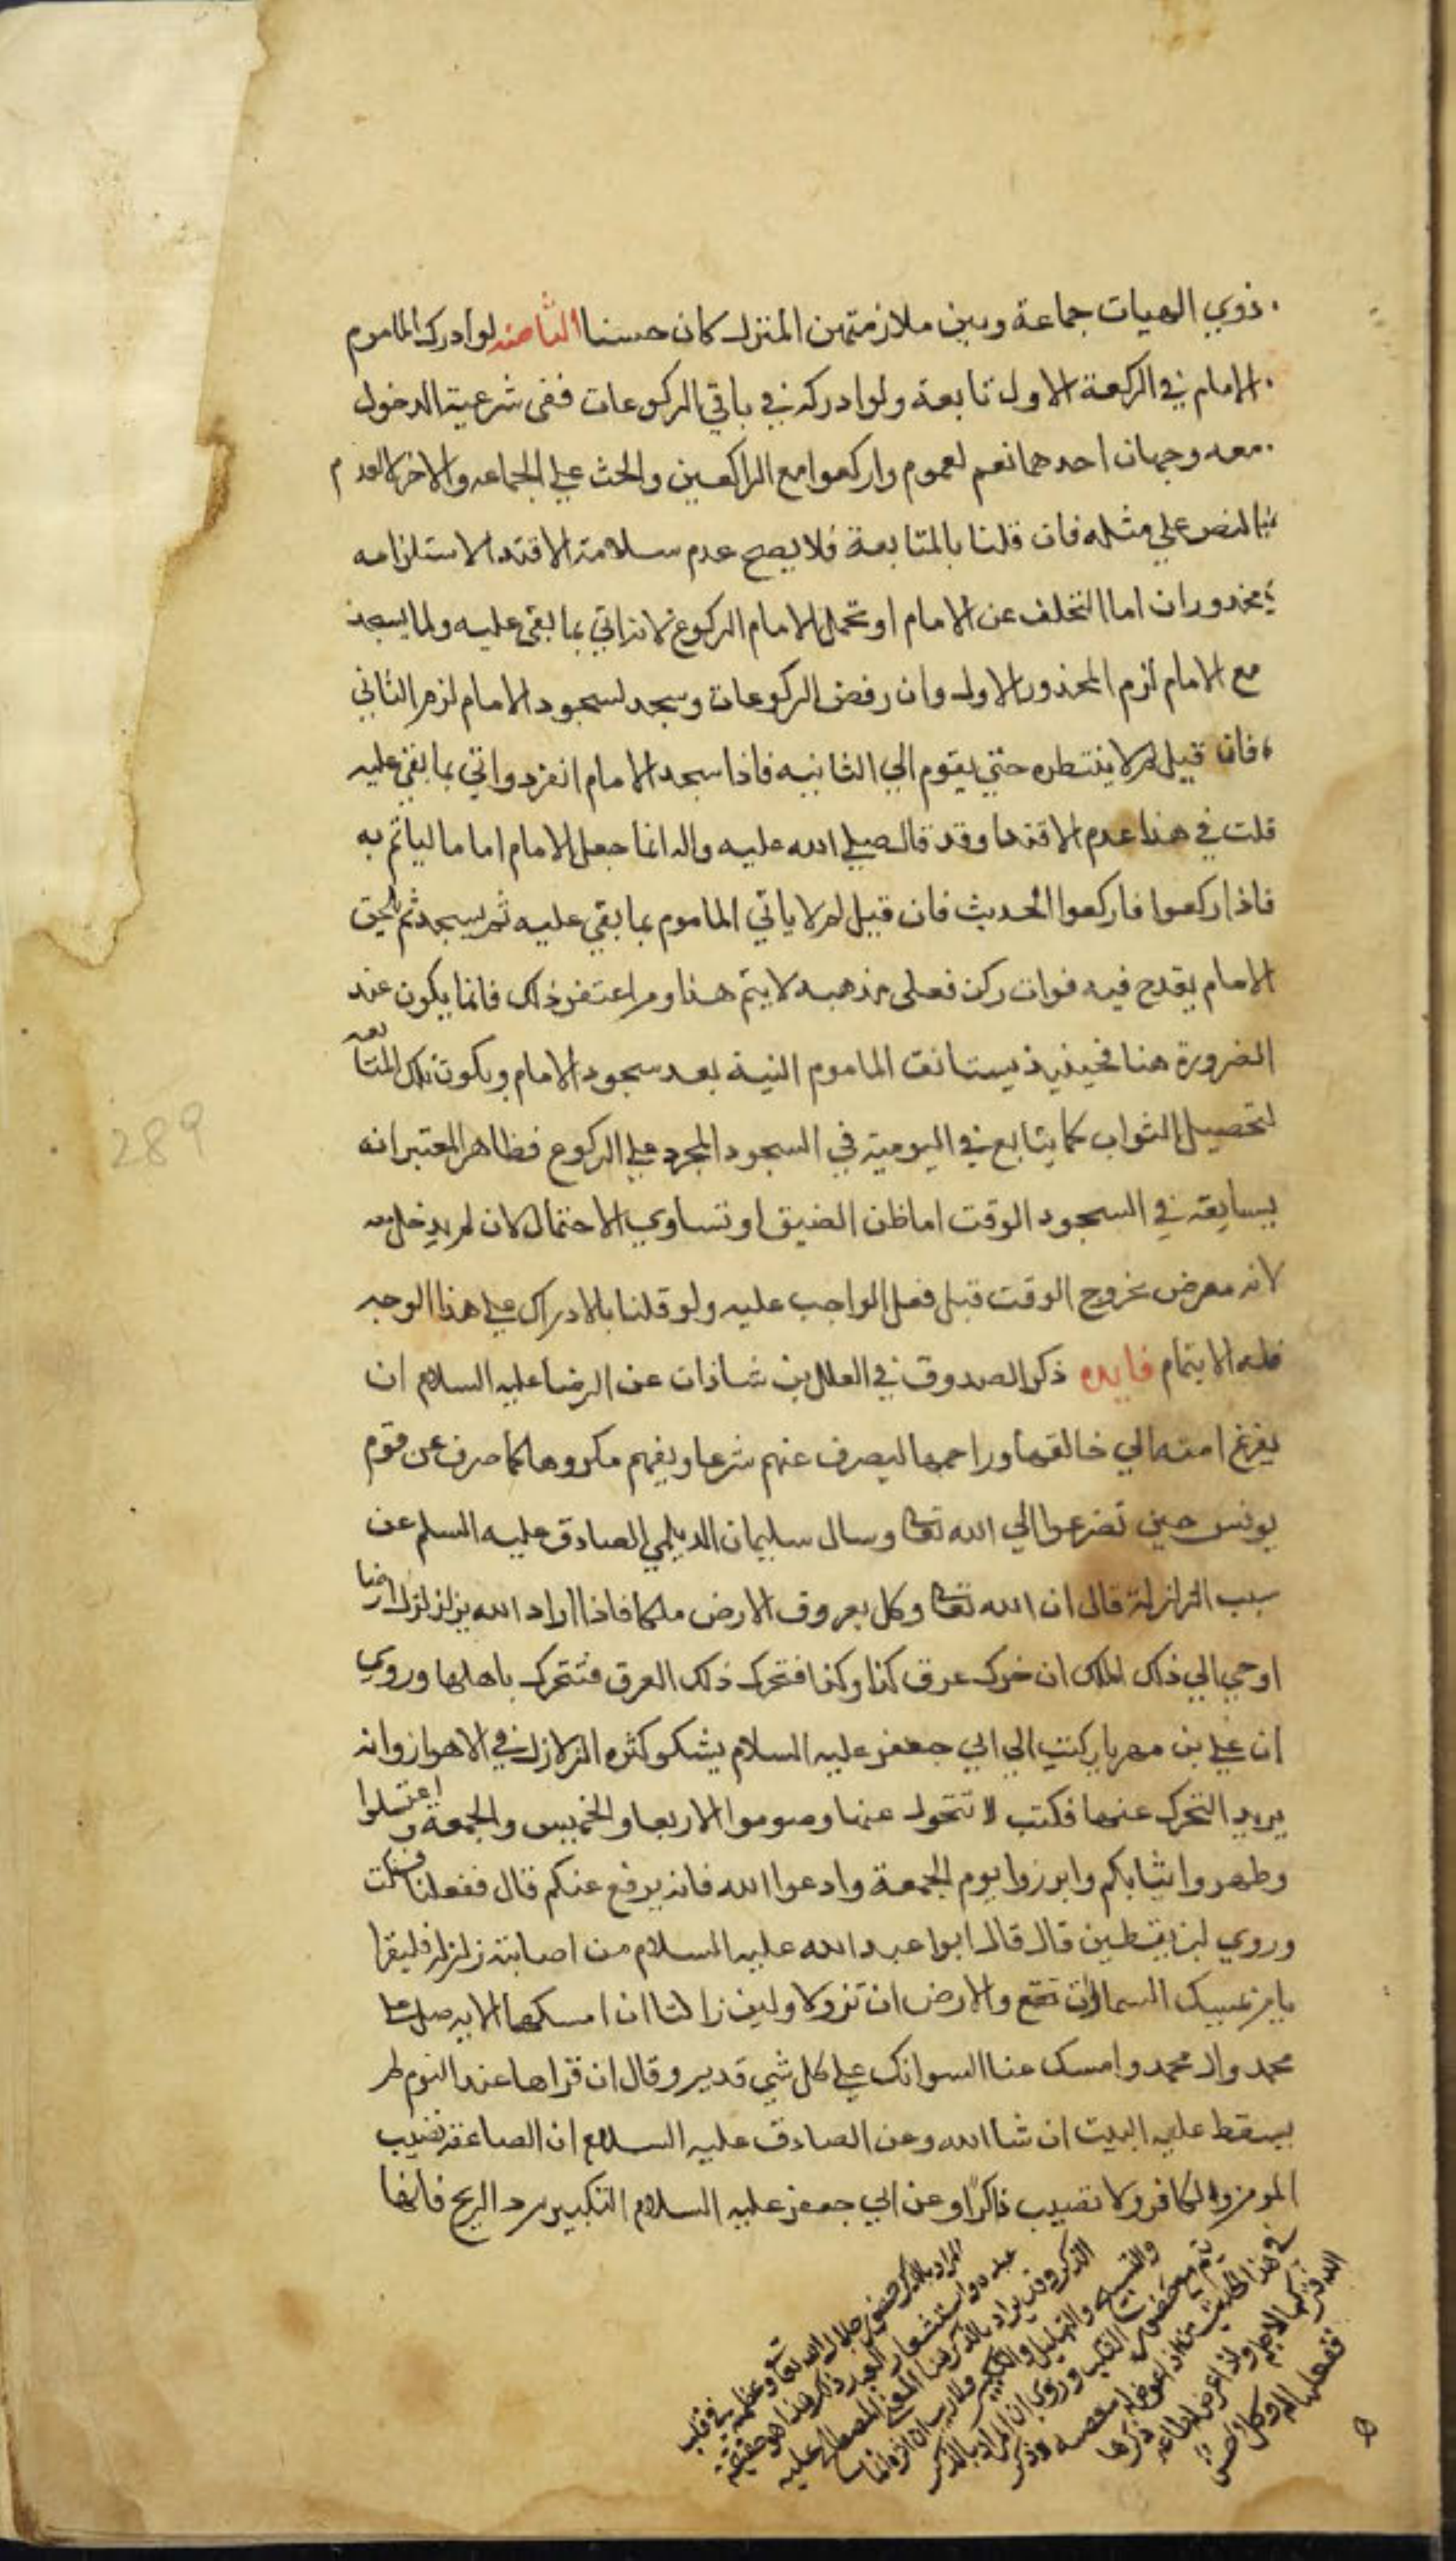 ذوي الهيات جماعة وبين ملازمتهن المنزل كان حسنا الثامنه لو ادرك الماموم
الامام في الركعة الاولي تابعة ولو ادركه في باقي الركوعات ففي شرعية الدخول
معه وجهان احدهما نعم لعموم واركعوا مع الراكعين والحث علي الجماعه والاخر لا لعدم
النص علي مثله فان قلنا بالمتابعة فلا يصح عدم سلامة الاقتدا لاستلزامه
محذوران اما التخلف عن الامام او تحمل الامام الركوع لانه ان اتي بما بقي عليه ولما يسجد
مع الامام لزم المحذور الاول وان رفض الركوعات وسجد لسجود الامام لزم الثاني
فان قيل لم لا ينتطره حتي يقوم الي الثانيه فاذا سجد الامام انفرد واتي بما بقي عليه
قلت في هذا عدم الاقتدا وقد قال صلي الله عليه واله انما جعل الامام اماما لياتم به
فاذا ركعوا فاركعوا الحديث فان قيل لم لا ياتي الماموم بما بقي عليه ثم يسجد ثم يلحق
الامام يقدح فيه فوات ركن فعلي مذهبه لا يتم هذا ومن اعتفر ذلك فانما يكون عند
الضرورة هنا فحينيذ يستانف الماموم النية بعد سجود الامام ويكون تلك المتابعه
لتحصيل الثواب كما يتابع في اليومية في السجود المجرد علي الركوع فظاهر المعتبر انه
يسابقه في السجود الوقت اما ظن الضيق او تساوي الاحتمالان لم يدخل معه
لانه معرض بخروج الوقت قبل فعل الواجب عليه ولو قلنا بالادراك علي هذا الوجه
فله الايتمام فايده ذكر الصدوق في العلل بن شاذان عن الرضا عليه السلام ان
يفزع امته الي خالقها وراحمها ليصرف عنهم شرها ويقيهم مكروهها كما صرف عن قوم
يونس حين تضرعوا الي الله تعالى وسال سليمان الديلمي الصادق عليه السلم عن
سبب الزلزلة قال ان الله تعالى وكل بعروق الارض ملكا فاذا اراد الله يزلزل ارضا
اوحي الي ذلك الملك ان حرك عرق كذا وكذا فتحرك ذلك العرق فتتحرك باهلها وروي
ان علي بن مهريار كتب الي ابي جعفر عليه السلام يشكو كثره الزلازل في الاهواز وانه
يريد التحرك عنها فكتب لا تتحول عنها وصوموا الاربعا والخميس والجمعة واعتسلوا
وطهروا ثيابكم وابرزوا يوم الجمعة وادعوا الله فانه يرفع عنكم قال ففعلنا فسكنت
وروي ابن يقطين قال قال ابوا عبد الله عليه السلام من اصابته زلزله فليقرا
يا من يمسك السماوات والارض ان تزولا ولين زالتا ان امسكهما الايه صل علي
محمد وال محمد وامسك عنا السو انك علي كل شي قدير وقال ان قراها عند النوم لم
يسقط عليه البيت ان شا الله وعن الصادق عليه السلام ان الصاعقه تصيب
المومن والكافر ولا تصيب ذاكرا وعن ابي جعفر عليه السلام التكبير يرد الريح فانها
المراد بالذكر حضور جلال الله تعالى وعظمته في قلب
عبده واستشعار العبد ذلك وهذا هو حقيقة
الذكر وقد يراد بالذكر هنا المعني المصطلح عليه
289